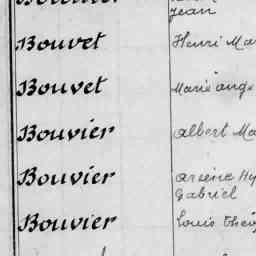 Jean
Bouvet Henri Ma
Bouvet Marie ange
Bouvier Albert Ma
Bouvier Arsène Hy
Gabriel
Bouvier Louis